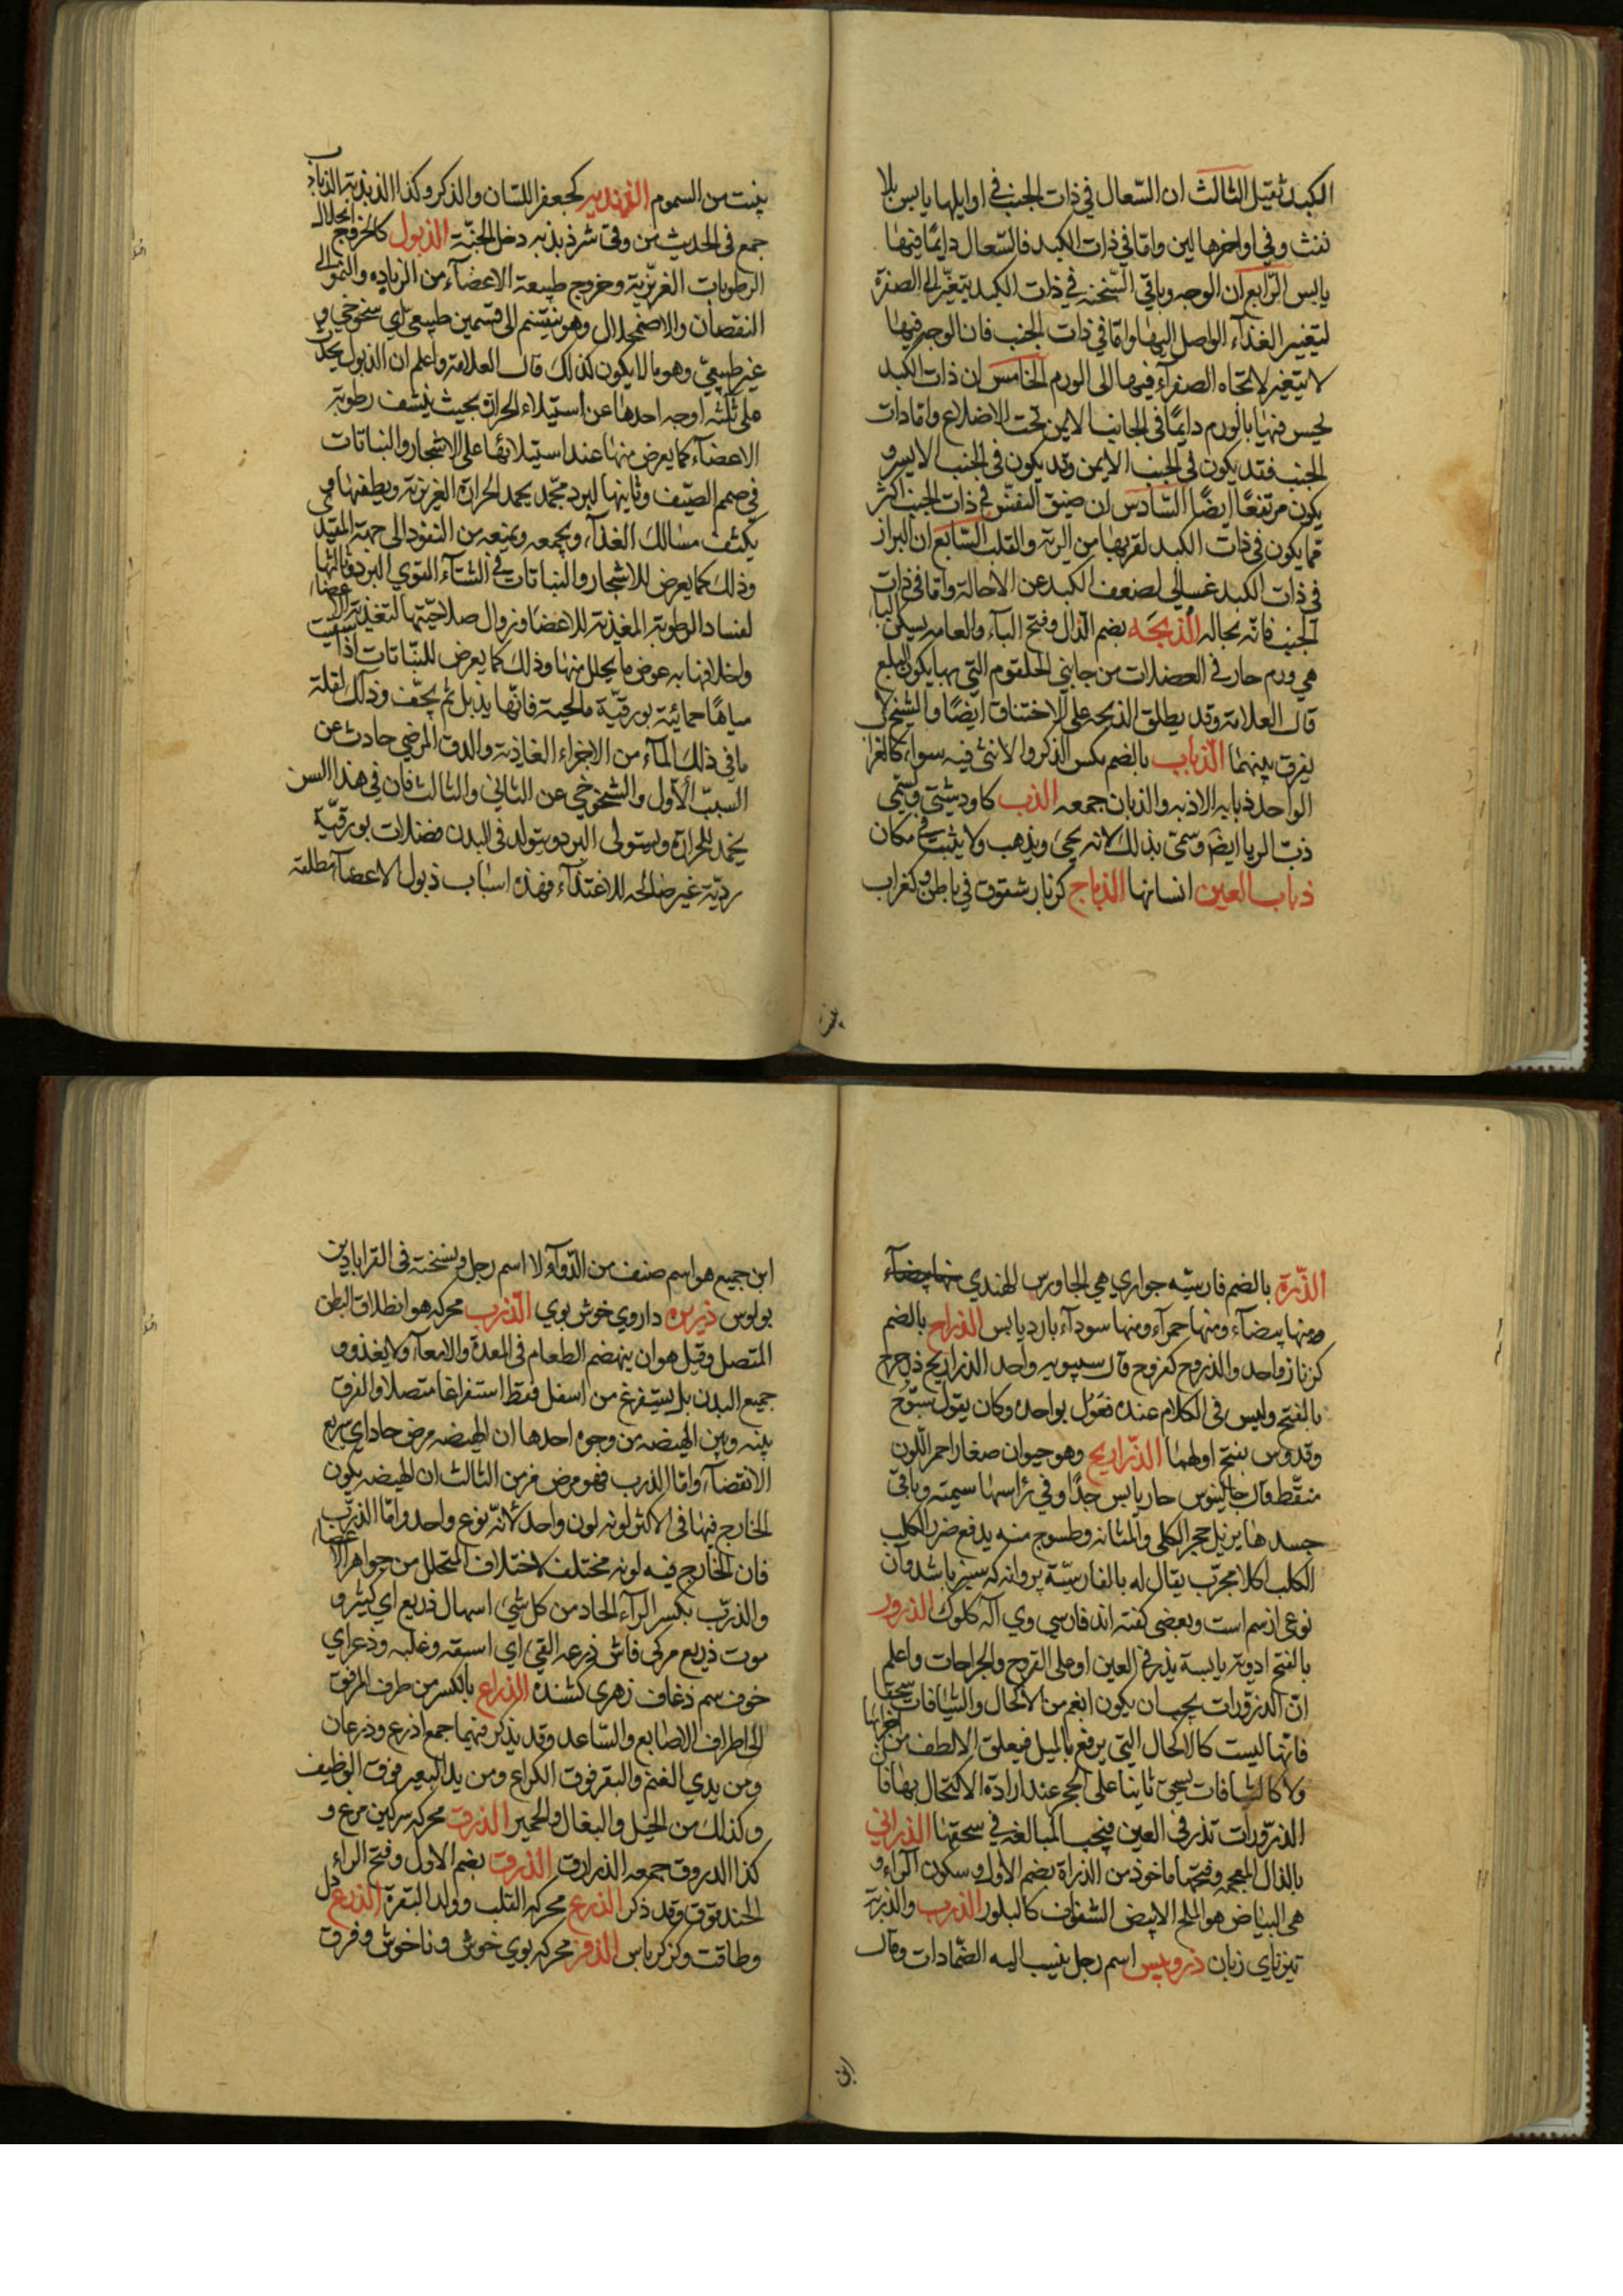 الكبد ثقيل الثالث ان السّعال فی ذات الجنب فی اوايلها يابس بلا
نفث وفی اواخرها لين وامّا فی ذات الكبد فالسّعال دايمًا فيها
يابس الرّابع ان الوجه وباقی السّحنة فی ذات الكبد يتغيّر الی الصفرة
لتغيير الغذآء الواصل اليها وامّا فی ذات الجنب فان الوجه فيها
لا يتغير لاتجاه الصفرآء فيها الی الورم الخامس ان ذات الكبد
يحس فيها بالورم دايمًا فی الجانب الايمن تحت الاضلاع وامّا ذات
الجنب فقد يكون فی الجنب الايمن وقد يكون فی الجنب الايسر و
يكون مرتفعًا ايضًا السّادس ان ضيق النفس فی ذات الجنب اكثر
ممّا يكون فی ذات الكبد لقربها من الرية والقلب السّابع ان البراز
فی ذات الكبد غسالی لضعف الكبد عن الاحالة وامّا فی ذات
الجنب فانّه بحاله الذبحه بضم الذال وفتح البآء والعامه يسكن البا
هی ورم حار فی العضلات من جانبی الحلقوم التی بها يكون البلع
قال العلامة وقد يطلق الذبحه علی الاختناق ايضًا والشيخ لا
يفرق بينهما الذباب بالضم مكس الذكر والانثی فيه سواء كالغراب
الواحد ذبابه الاذبه والذبان جمعه الذب كاو دشتی ويسمّی
ذبّ الريا ايضا وسمّی بذلك لانه يجیء ويذهب ولا يثبت فی مكان
ذباب العين انسانها الذباج كزنار شقوق فی باطن و كغراب
ينبت
نبت من السموم الذبذب كجعفر اللسان والذكر وكذا الذبذبة الذباذب
جمع فی الحديث من وقی شر ذبذبه دخل الجنّة الذبول كالخروج انحلال
الرطوبات الغريزية وخروج طبيعة الاعضآء من الزياده والنمو الی
النقصان والاضمحلال وهو ينقسم الی قسمين طبيعی ای شيخوخی و
غير طبيعیّ وهو ما لا يكون كذلك قال العلامة واعلم ان الذبول يحدث
علی ثلثه اوجه احدها عن استيلاء الحرارة بحيث ينشف رطوبة
الاعضآء كما يعرض منها عند استيلائها علی الاشجار والنباتات
فی صميم الصيّف وثانيها لبرد مجمد يجمد الحرارة الغريزية ويطفيها و
يكثف مسالك الغذآء ويجمعه ويمنعه من النفوذ الی جهة المقيد
وذلك كما يعرض للاشجار والنباتات فی الشتآء القوی البرد وثالثها
لفساد الرطوبة المغذية للاعضا وزوال صلاحيّتها لتغذية الاعضاء
واخلافها به عوض ما يحلل منها وذلك كما يعرض للنّباتات اذا سقيت
مياهًا حمائية بورقيّة مالحية فانّها يذبل ثم يجفّ وذلك لقلة
ما فی ذلك المآء من الاجزاء الغاذية والدق المرضی حادث عن
السبب الاوّل والشيخوخی عن الثانی والثالث فان فی هذا السن
يخمد الحرارة ويستولی البرد ويتولد فی البدن فضلات بورقيّة
رديّة غير صالحه للاغتذآء فهذه اسباب ذبول الاعضآء مطلقة
الذّرة بالضم فارسيّه جواری هی الجاورس الهندی
ومنها بيضآء ومنها حمرآء ومنها سودآء بارد يابس الذراح بالضم
كزنار واحد والذروح كفروح قال سيبويه واحد الذراريح ذرحرح
بالفتح وليس فی الكلام عنده فعول بواحده وكان يقول سبّوح
وقدوس بفتح اولهما الذراريح وهو حيوان صغار احمر اللّون
منقّط قال جالينوس حار يابس جدًا وفی رأسها سيمته وباقی
جسدها يزيل حجر الكلی والمثانه وطسوج منه يدفع ضرر الكلب
الكلب اكلا مجرّب يقال له بالفارسيّة پروانه كه سبز باشد وآن
نوعی از سم است وبعضی گفته اند فارسی وی آله كلوك الذرور
بالفتح ادوية يابسة يذر فی العين او علی القروح والجراحات واعلم
انّ الذرورات يجب ان يكون انعم من الاكحال والشيافات سحقا
فانّها ليست كالاكحال التی يرفع بالميل فيعلق الالطف من اجزائها
ولا كالشيافات يسحق ثانيا علی الحجر عند ارادة الاكتحال بها فان
الذرّورات تذر فی العين فيجب المبالغه فی سحقها الذرانی
بالذال المعجمه وفتحها ماخوذ من الذراة بضم الاول وسكون الرآء و
هی البياض هو الملح الابيض الشفاف كالبلور الذرب والذربة
تيز نای زبان ذروبيس اسم رجل ينسب اليه الضّمادات وقال
ابن
ابن جميع هو اسم صنف من الدّوآء لا اسم رجل ونسخته فی القرابادين
بولوس ذريره داروی خوش بوی الذرب محركه هو انطلاق البطن
المتصل وقيل هو ان ينهضم الطعام فی المعدة والامعآء ولا يغذو و
جميع البدن بل يستفرغ من اسفل فقط استفراغا متصلا والفرق
بينه وبين الهيضه من وجوه احدها ان الهيضه مرض حاد ای سريع
الانقضآء وامّا الذرب فهو مرض مزمن الثالث ان الهيضه يكون
الخارج فيها فی الاكثر لونه لون واحد لانّه نوع واحد وامّا الذرب
فان الخارج فيه لونه مختلف لاختلاف المتحلل من جواهر الاعضاء
والذرب بكسر الرآء الحاد من كل شیء اسهال ذريع ای كثير و
موت ذريع مركی فاش ذرعه القیء ای اسبقه وغلبه وذعر ای
خوف سم ذعاف زهری كشنده الذراع بالكسر من طرف المرفق
الی اطراف الاصابع والساعد وقد يذكر فيهما جمع اذرع وذرعان
ومن يدی الغنم والبقر فوق الكراع ومن يد البعير فوق الوظيف
وكذلك من الخيل والبغال والحمير الذرق محركه سركين مرغ و
كذا الدروق جمعه الذرارق الذرق بضم الاول وفتح الراء
الحندقوق وقد ذكر الذرع محركه القلب وولد البقرة الذرع دل
وطاقت وكز كرباس الذفر محركه بوی خوش وناخوش وفرق